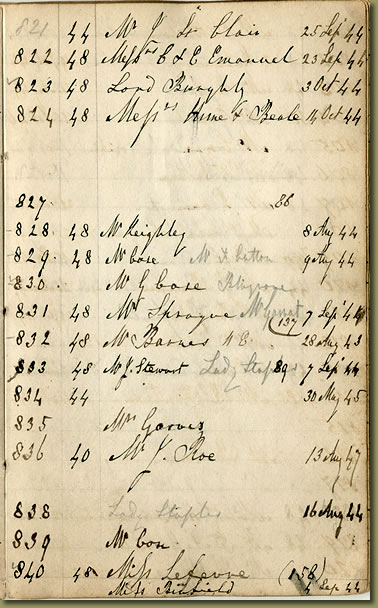 821 44 Mr J St Clair 25 Sep 44
822 48 Messrs C & E Emanuel 23 Sep 44
823 48 Lord Burghly 3 Oct 44
824 48 Messrs Hume & Beale 14 Oct 44
827 86
828 48 Mr Keighley 8 Aug 44
829 48 Mr Case 9 Aug 44
830 Mr G Case
831 48 Mr Sprague 7 Sep 44
832 48 Mr Barnes (137) 28 Aug 43
833 48 Mr J. Stewart Lady Stapl 89 7 Sep 44
834 44 30 May 45
835 Mrs
836 40 Mr J. Roe 13 Aug 47
838 Lady Staples 16 Aug 44
839 Mr Con
840 48 Miss Lefevre (158)
Miss 4 Sep 44